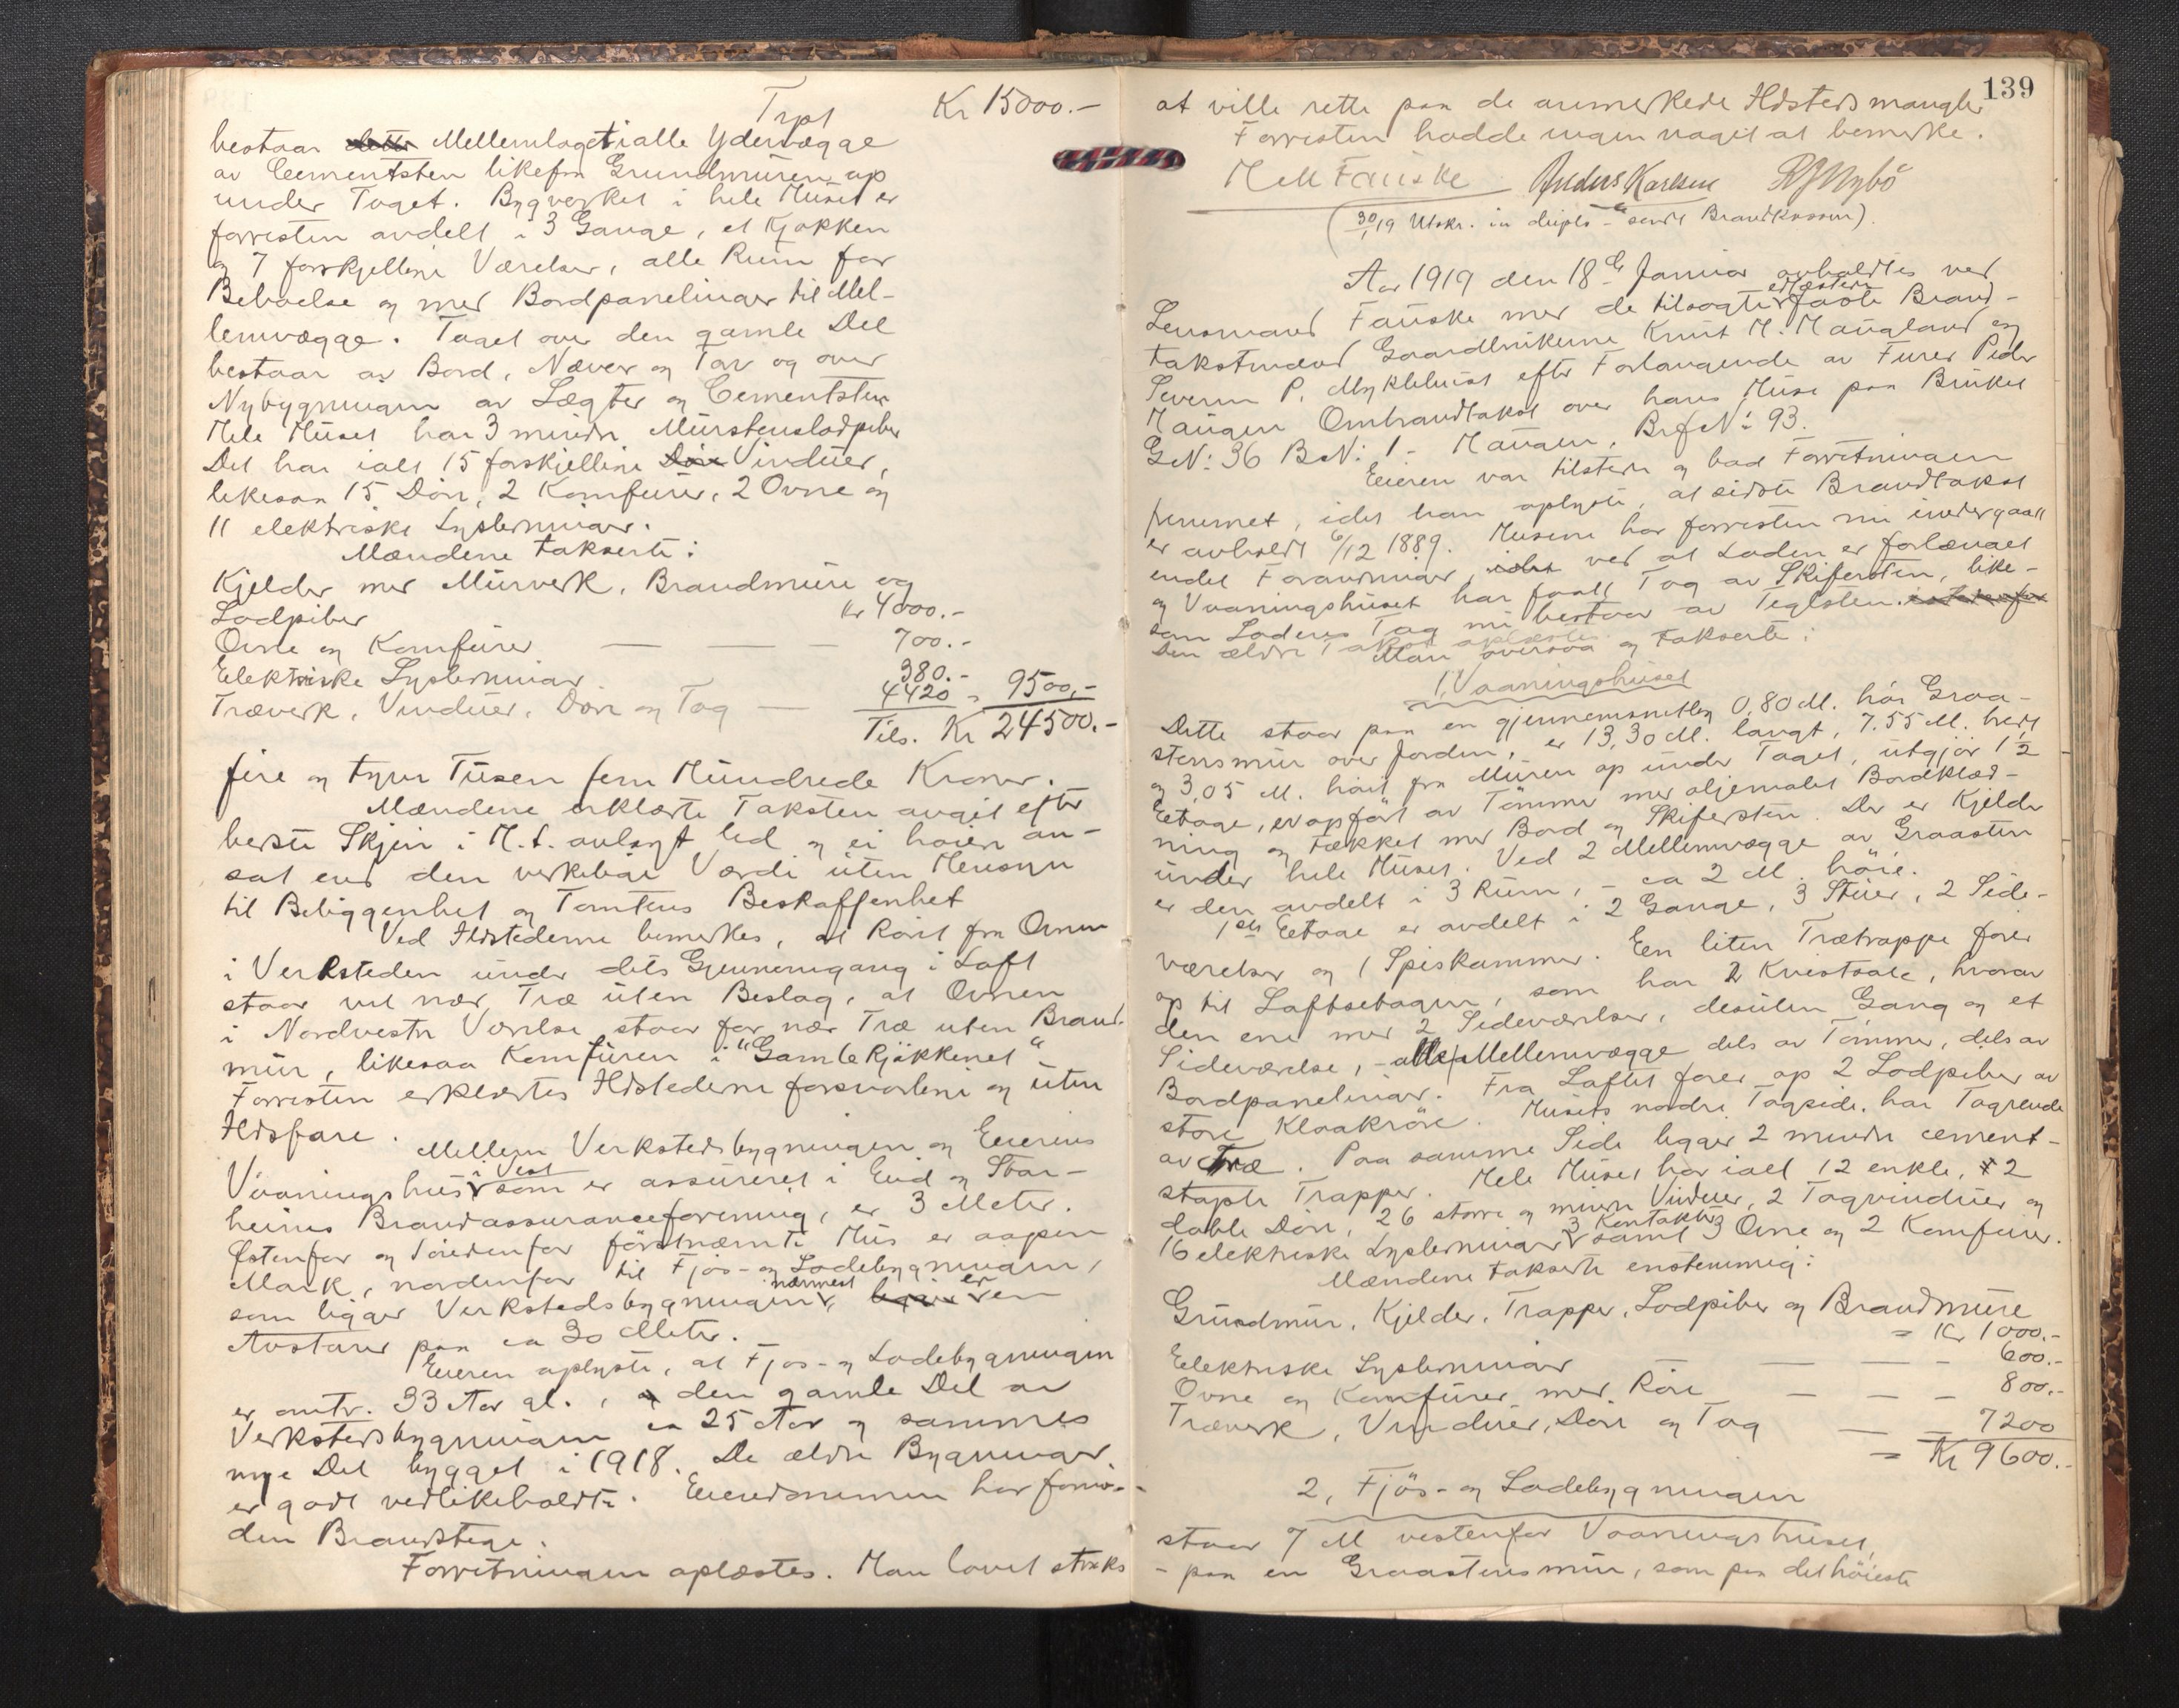 Trpt Kr 15000.-
bestaar dette Mellemlaget i alle Ydervægge
av Cementsten likefra Grundmuren op
under Taget. Bygverket i hele Huset er
forresten avdelt i 3 Gange, et Kjøkken
og 7 forskjellene Værelser, alle Rum for
Beboelse og med Bordpanelinger til Mel-
lemvægge. Taget over den gamle Del
bestaar av Bord, Næver og Torv og over
Nybygningen av Lægter og Cementsten
Hele Huset har 3 mindre Murstenslodpiber
Det har ialt 15 forskjellene Døre Vinduer,
likesaa 15 Døre, 2 Komfurer, 2 Ovne og
11 elektriske Lysledninger.
Mændene takserte:
Kjelder med Murverk, Brandmure og
Lodpiber Kr 4000.-
Ovne og Komfurer — — — 700.-
Elektriske Lysledninger 380.-
Træverk, Vinduer, Døre og Tag — 4420 = 9500,-
Tils. Kr 24500.-
fire og tyve Tusen fem Hundrede Kroner.
Mændene erklærte Taksten avgit efter
beste Skjøn i H. t. avlagt Ed og ei høiere an-
sat end den virkelige Værdi uten Hensyn
til Beliggenhet og Tomtens Beskaffenhet
Ved Ildstederne bemerkes, at Røret fra Ovnen
i Verksteden under dets Gjennemgang i Loft
staar vel nær Træ uten Beslag, at Ovnen
i Nordvestre Værelse staar for nær Træ uten Brand-
mur, likesaa Komfuren i "Gamle Kjøkkenet"-
Forresten erklærtes Ildstederne forsvarlene og uten
Ildsfare.
Mellem Verkstedsbygningen og Eierens
i Vest
Vaaningshus som er assureret i Eid og Stor-
heims Brandassuranceforening, er 3 Meter.
Østenfor og søndenfor førstnævnte Hus er aapen
Mark, nordenfor til Fjøs- og Ladebygningen,
nærmest er
som ligger Verkstedsbygningen, en
Avstand paa ca 30 Meter.
Eieren oplyste, at Fjøs- og Ladebygningen
er omtr. 33 Aar gl., og den gamle Del av
Verkstedsbygningen ca 25 Aar og sammes
nye Del bygget i 1918. De ældre Bygninger
er godt vedlikeholdte. Eiendommen har fornø-
den Brandstige.
Forretningen oplæstes. Man lovet straks
139
at ville rette paa de anmerkede Ildstedsmangler
Forresten hadde ingen noget at bemerke.
H M Fauske Anders Karlsen R J Nybø
(30/1 19 Utskr. in duplo - sendt Brandkassen).
Aar 1919 den 18de Januar avholdtes ved
edfæstede
Lensmand Fauske med de tilsagte faste Brand-
takstmænd Gaardbrukerne Knut H. Haugland og
Severin P. Myklebust efter Forlangende av Furer Peder
Haugen Ombrandtakst over hans Huse paa Bruket
GNo: 36 BNo: 1 - Haugen, BrfNo: 93.
Eieren var tilstede og bad Forretningen
fremmet, idet han oplyste, at sidste Brandtakst
er avholdt 6/12 1889. Husene har forresten nu undergaat
endel Forandringer, idet ved at Laden er forlænget
og Vaaningshuset har faatt Tag av Skifersten, like-
som Ladens Tag nu bestaar av Teglsten.
Den ældre Takst oplæstes.
Man oversaa og takserte:
1, Vaaningshuset
Dette staar paa en gjennemsnitlig 0,80 M. høi Graa-
stensmur over Jorden, er 13,30 M. langt, 7.55 M. bredt
og 3,05 M. høit fra Muren op under Taget, utgjør 1½
Etage, er opført av Tømmer med oljemalet Bordklæd-
ning og tækket med Bord og Skifersten. Der er Kjelder
under hele Huset. Ved 2 Mellemvægge av Graasten
er den avdelt i 3 Rum, - ca 2 M. høie.
1ste Etage er avdelt i 2 Gange, 3 Stuer, 2 Side-
værelser og 1 Spiskammer. En liten Trætrappe fører
op til Loftsetagen, som har 2 Kvistsale, hvorav
den ene med 2 Sideværelser, desuten Gang og et
Sideværelse, - alle Mellemvægge dels av Tømmer, dels av
Bordpanelinger. Fra Loftet fører op 2 Lodpiber av
store Kloakrør. Husets nordre Tagside har Tagrende
av Træ. Paa samme Side ligger 2 mindre cement-
støpte Trapper. Hele Huset har ialt 12 enkle, 2
doble Døre, 26 større og mindre Vinduer, 2 Tagvinduer og
3 Kontakter
16 elektriske Lysledninger samt 3 Ovne og 2 Komfurer.
Mændene takserte enstemmig:
Grundmur, Kjelder, Trapper, Lodpiber og Brandmure
= Kr 1000.-
Elektriske Lysledninger — — - 600.-
Ovne og Komfurer med Rør — — - 800.-
Træverk, Vinduer, Døre og Tag — - 7200
= Kr 9600.-
2, Fjøs- og Ladebygningen
staar 7 M vestenfor Vaaningshuset,
- paa en Graastensmur, som paa det høieste